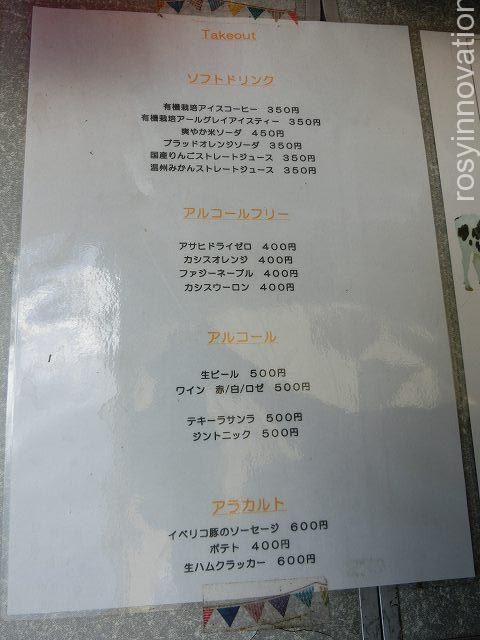 Takeout
ソフトドリンク
有機栽培アイスコーヒー 350円
有機栽培アールグレイアイスティー 350円
爽やか米ソーダ 450円
ブラッドオレンジソーダ 350円
国産りんごストレートジュース 350円
温州みかんストレートジュース 350円
アルコールフリー
アサヒドライゼロ 400円
カシスオレンジ 400円
ファジーネーブル 400円
カシスウーロン 400円
アルコール
生ビール 500円
ワイン 赤/白/ロゼ 500円
テキーラサンラ 500円
ジントニック 500円
アラカルト
イベリコ豚のソーセージ 600円
ポテト 400円
生ハムクラッカー 600円
rosyinnovation